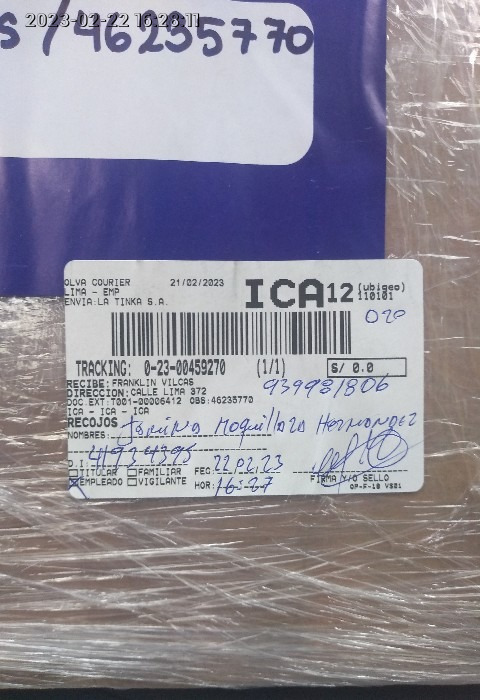 2023-02-22 16:28:11
s/46235770
OLVA COURIER 21/02/2023
LIMA - EMP
ENVIA:LA TINKA S.A.
ICA12 (ubigeo)
110101
TRACKING: 0-23-00459270 (1/1) S/ 0.0
RECIBE:FRANKLIN VILCAS
DIRECCION:CALLE LIMA 372
939981806
DOC EXT:T001-00006412 OBS:46235770
ICA - ICA - ICA
RECOJOS
NOMBRES: Hernandez
D.I: 41934395
TITULAR FAMILIAR FEC: 22.02.23
EMPLEADO VIGILANTE HOR: 16:27
FIRMA Y/O SELLO
OP-F-18 VS01